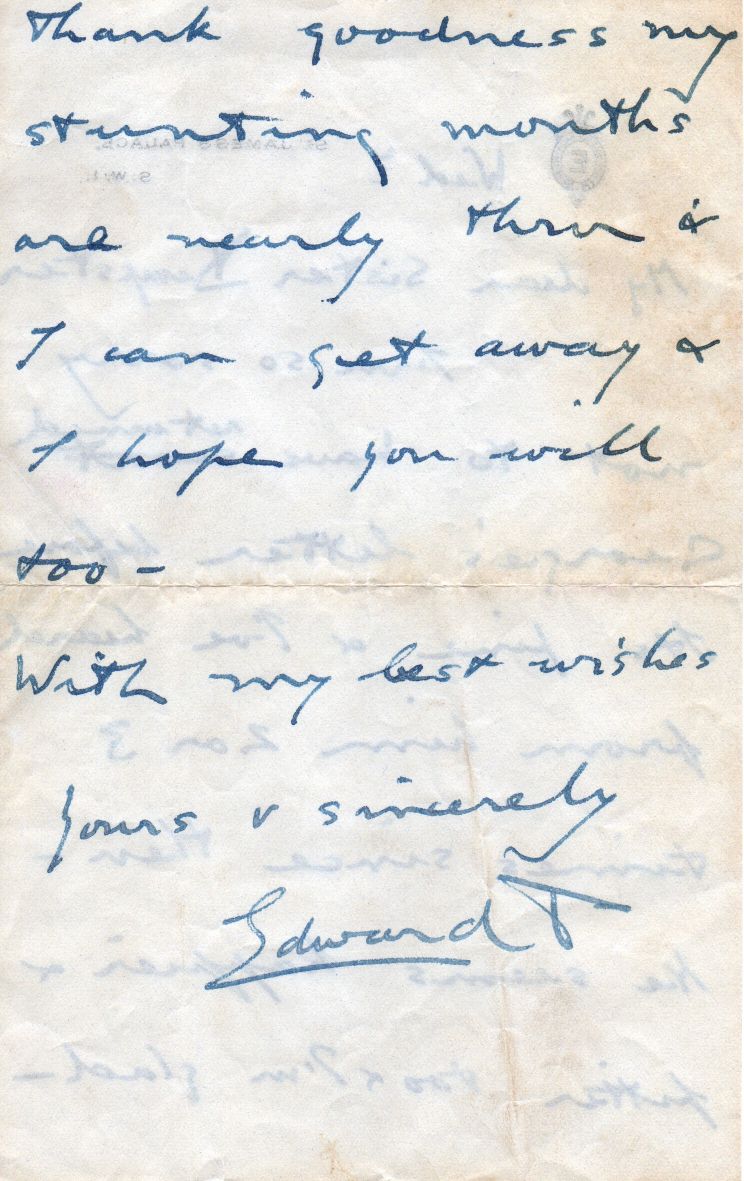 thank goodness my
stunting months
are nearly thro &
I can get away &
I hope you will
too –
With my best wishes
yours v sincerely
Edward P